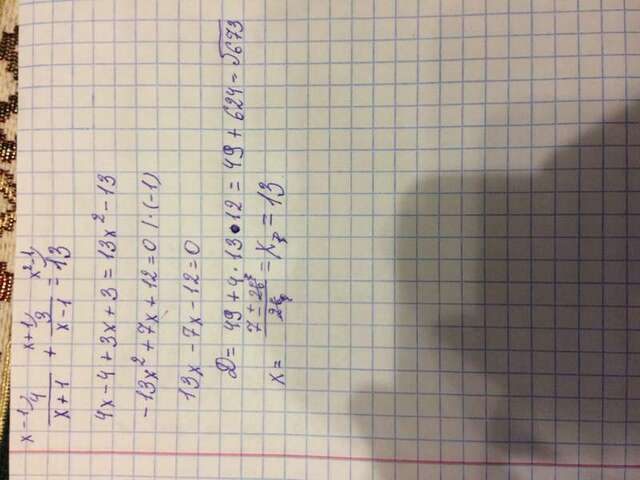 x-1/ 4/(x+1) + x+1/ 3/(x-1) = x²-1/ 13
4x-4+3x+3=13x²-13
-13x²+7x+12=0 /·(-1)
13x-7x-12=0
D= 49+4·13·12=49+624=√673
x= (7±26)/26 = x = 13